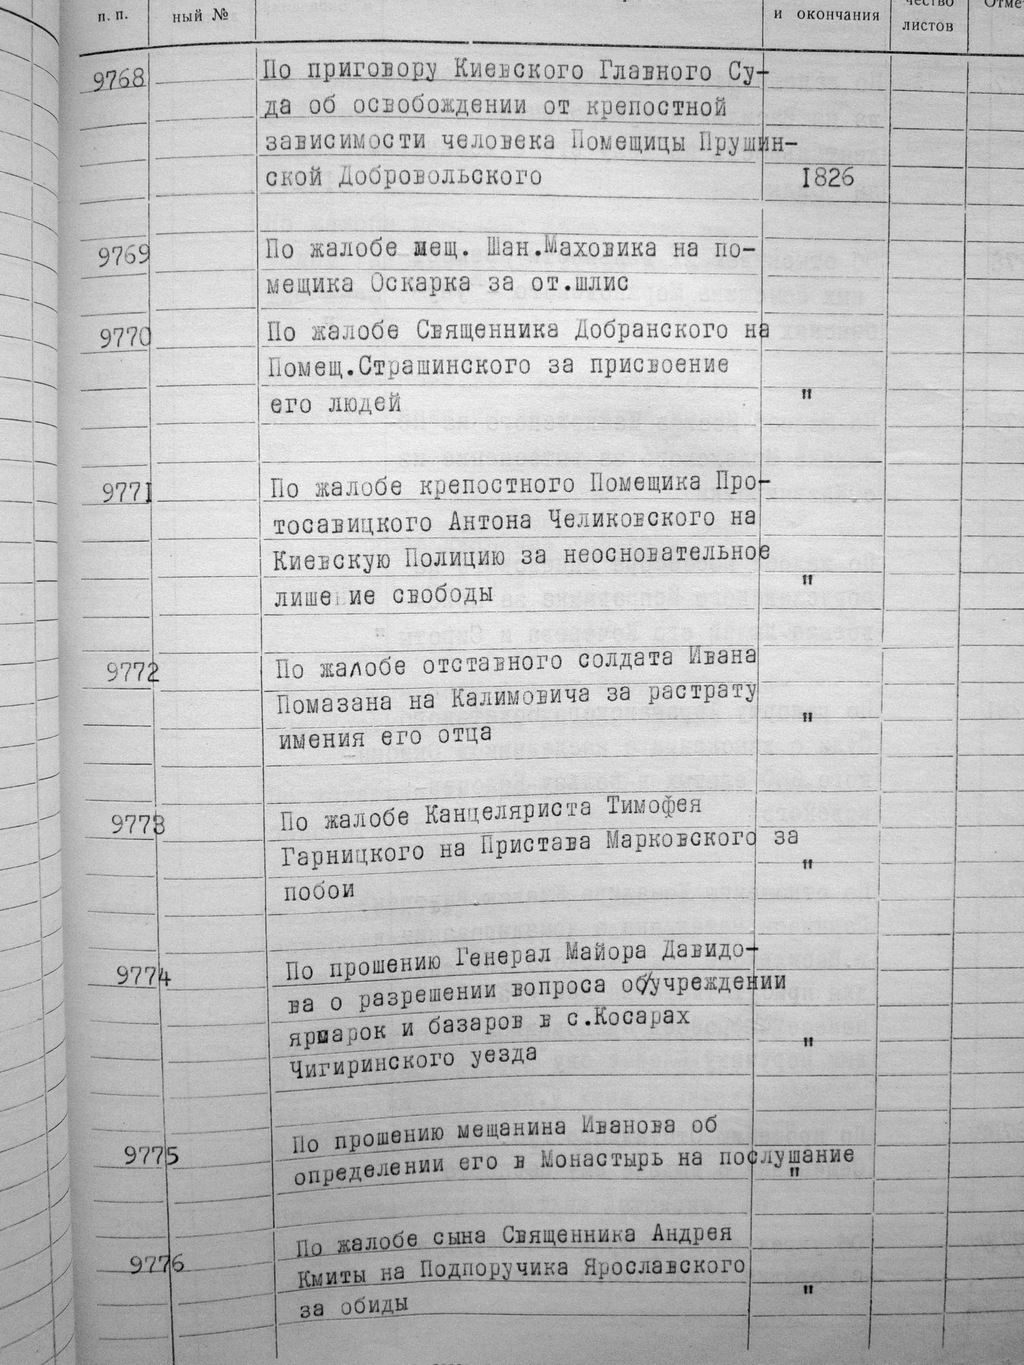 п. п. ный № и окончания чество листов Отме
9768 По приговору Киевского Главного Су-
да об освобождении от крепостной
зависимости человека Помещицы Прушин-
ской Добровольского 1826
9769 По жалобе мещ. Шан.Маховика на по-
мещика Оскарка за от.шлис
9770 По жалобе Священника Добранского на
Помещ.Страшинского за присвоение
его людей "
9771 По жалобе крепостного Помещика Про-
тосавицкого Антона Челиковского на
Киевскую Полицию за неосновательное
лише ие свободы "
9772 По жалобе отставного солдата Ивана
Помазана на Калимовича за растрату
имения его отца "
9773 По жалобе Канцеляриста Тимофея
Гарницкого на Пристава Марковского за
побои "
9774 По прошению Генерал Майора Давидо-
ва о разрешении вопроса об/учреждении
ярмарок и базаров в с.Косарах
Чигиринского уезда "
9775 По прошению мещанина Иванова об
определении его в Монастырь на послушание "
9776 По жалобе сына Священника Андрея
Кмиты на Подпоручика Ярославского
за обиды "